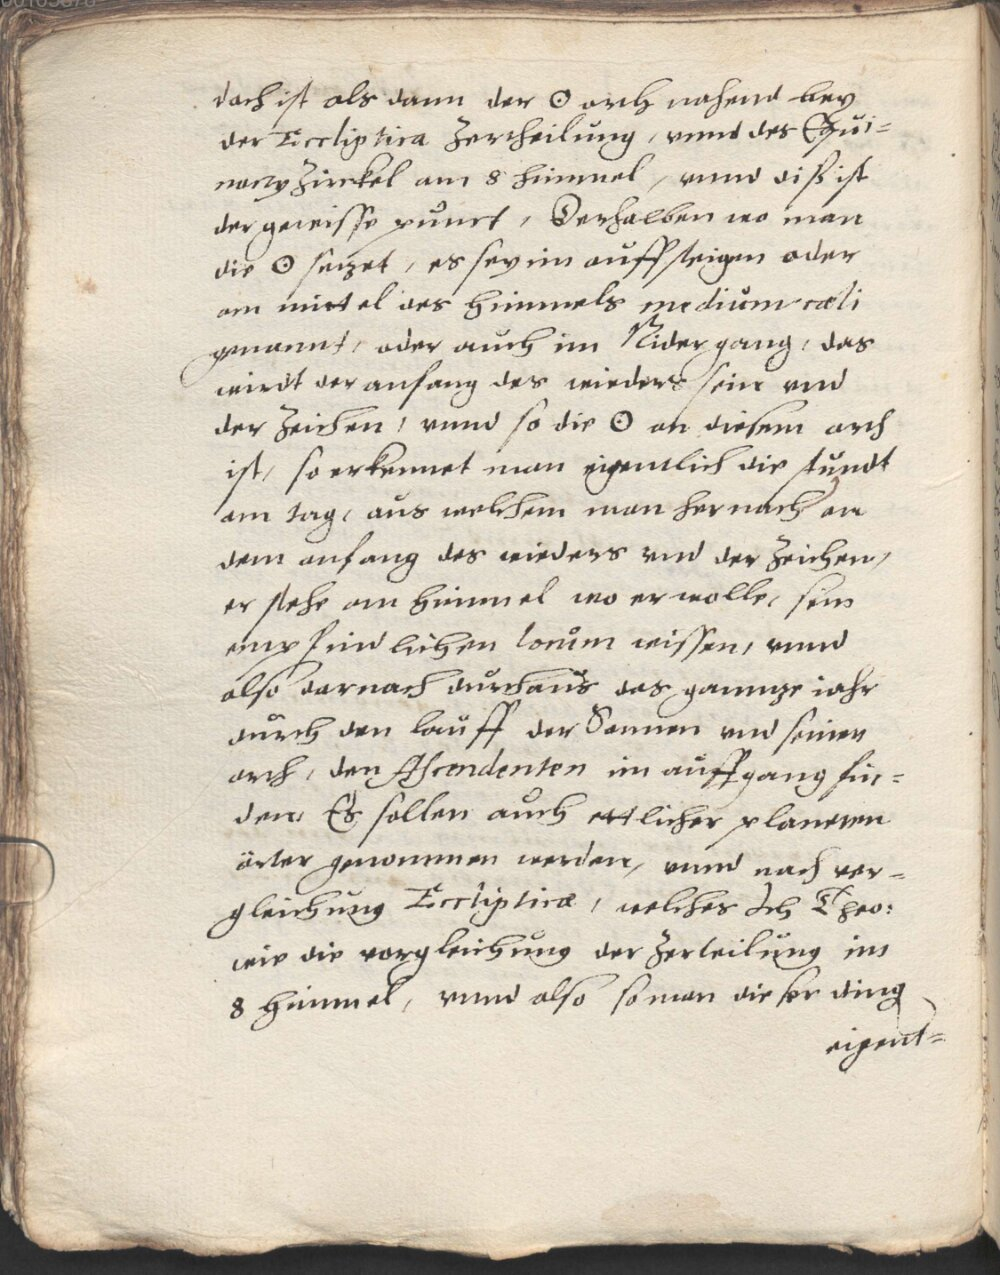 doch ist als dann der ☉ arch nahend bey
der Eccliptica Zertheilung, vnnd des Equi=
noctÿ Zirckel am 8 himmel, vnnd diß ist
der gewisse punct, Derhalben wo man
die ☉ sezet, es sey im auffsteigen oder
am mittel des himmels medium cœli
genannt, oder auch im Nidergang, das
wirdt der anfang des wieders sein vnd
der Zeichen, vnnd so die ☉ an diesem arch
ist, so erkennet man eigentlich die stundt
am tag, aus welchem man hernach an
dem anfang des wieders vnd der Zeichen,
er stehe am himmel wo er wolle, sein
empfindlichen locum wissen, vnnd
also darnach durchaus das gannze iahr
durch den lauff der Sonnen vnd seinen
arch, den Ascendenten im auffgang fin=
den, Es sollen auch ettlicher planeten
örter genommen werden, vnnd nach ver=
gleichung Ecclipticæ, welches Ich Theo:
wie die vergleichung der Zerteilung im
8 himmel, vnnd also so man dieser ding
eigent=